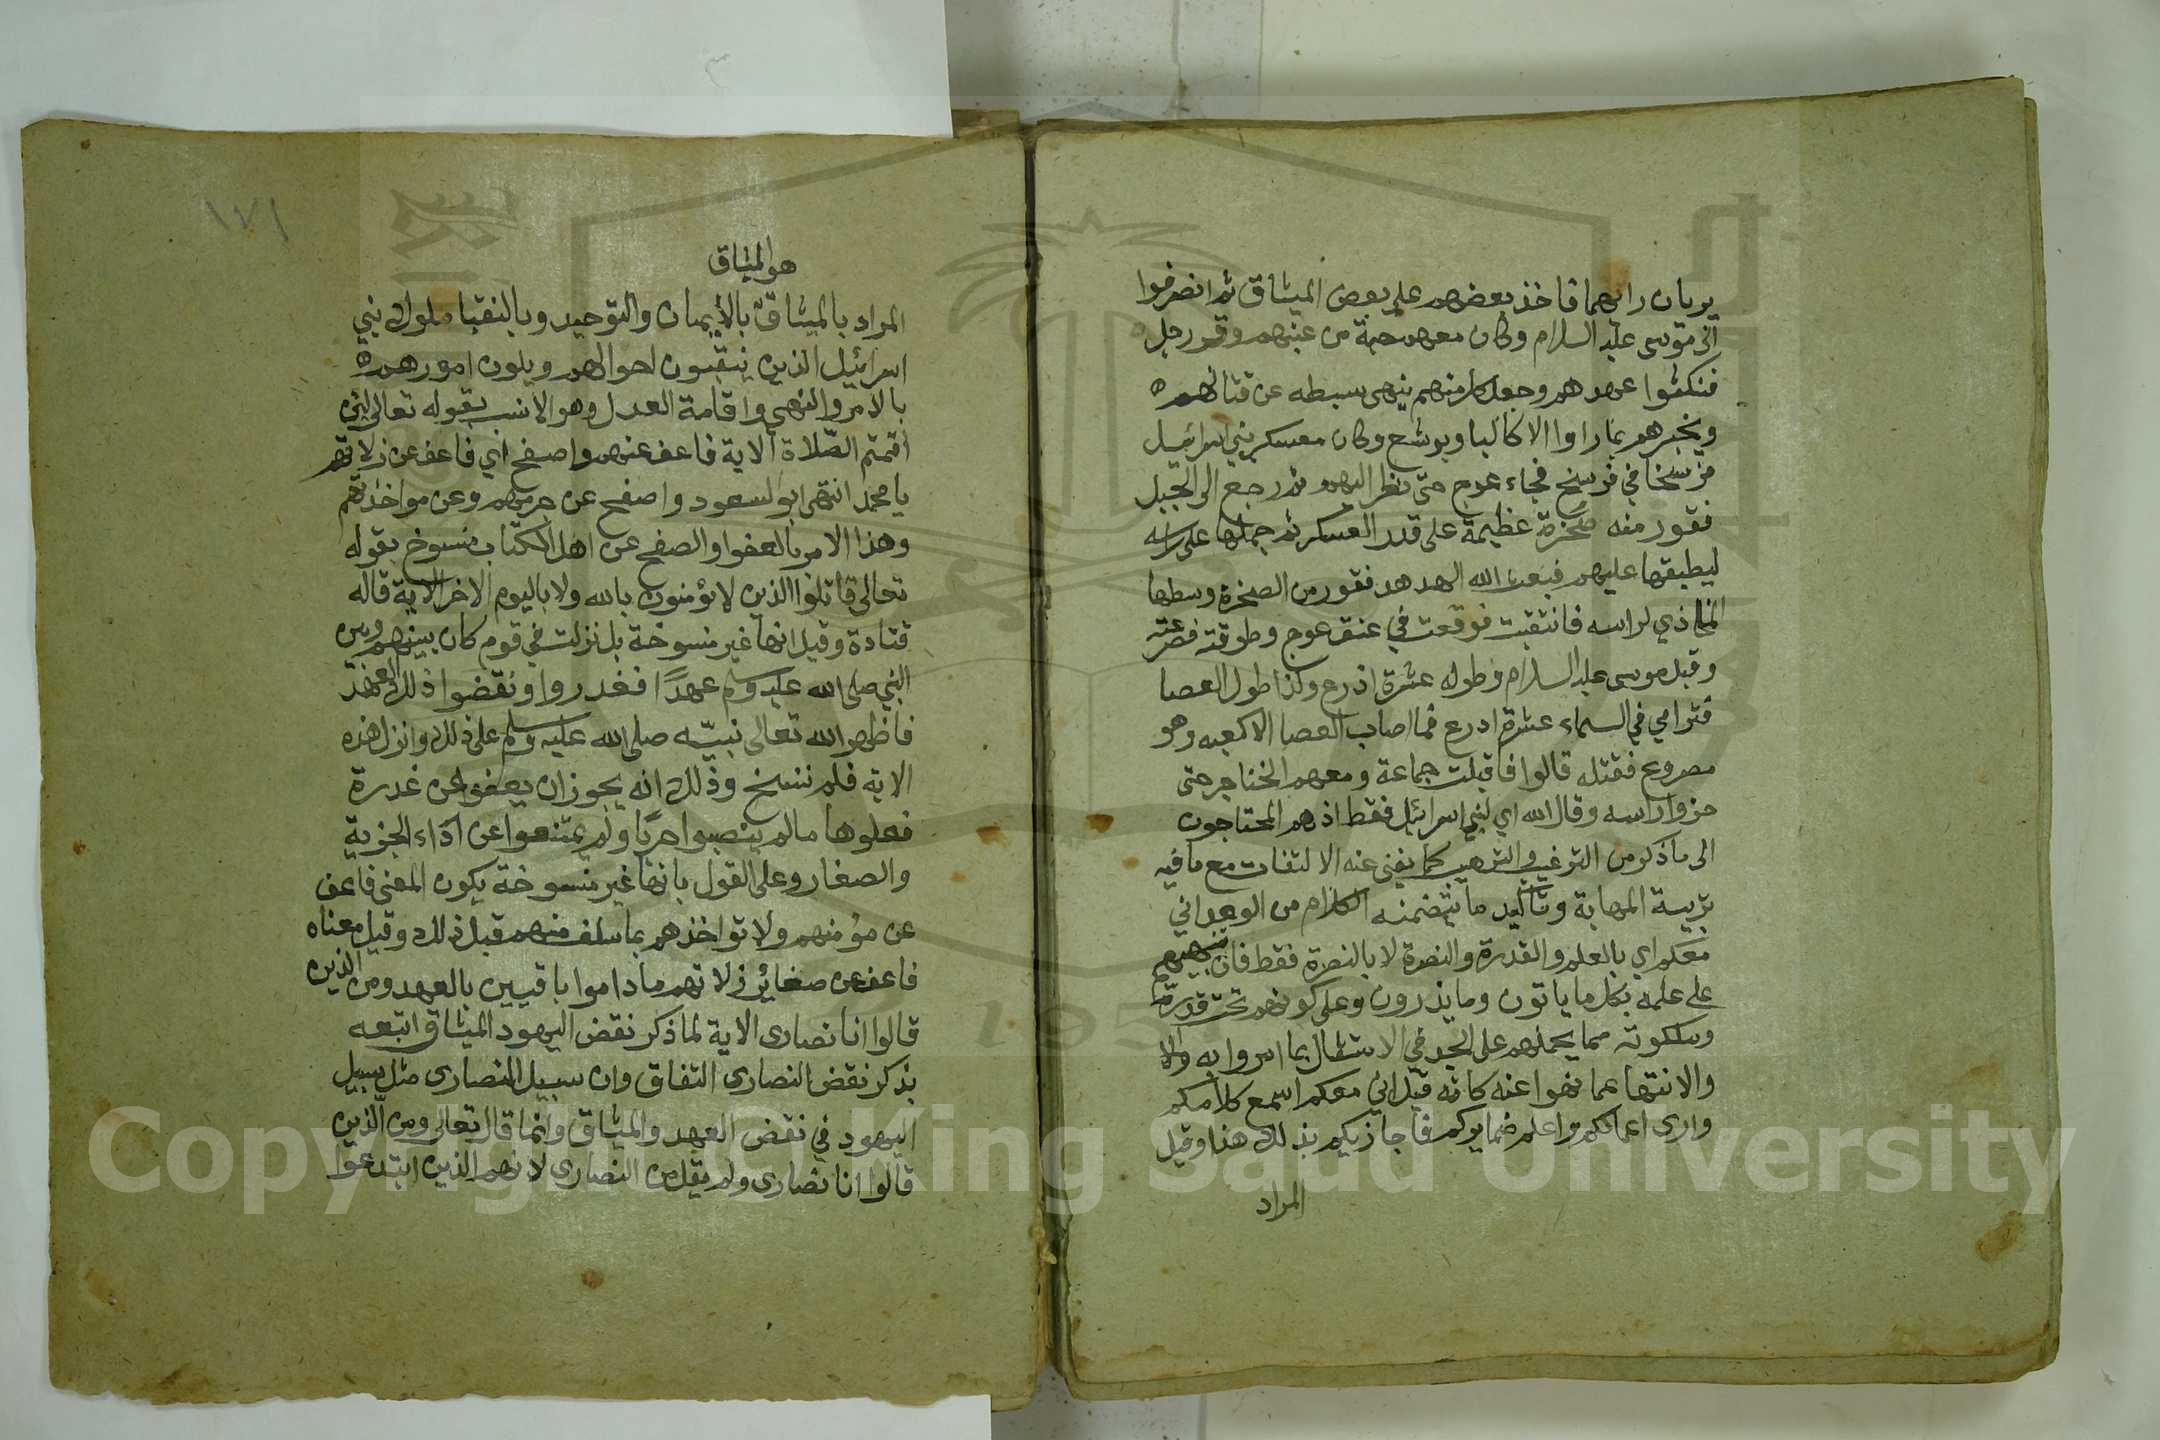 يريان رايهما فاخذ بعضهم على بعض الميثاق ثم انصرفوا
الى موسى عليه السلام وكان معهم حبة من عنبهم وقر رجل
فنكثوا عهدهم وجعل كل منهم ينهى سبطه عن قتالهم
ويخبرهم بما راوا الا كالبا ويوشع وكان معسكر بني اسرائيل
فرسخا في فرسخ فجاء عوج حتى نظر اليهم ثم رجع الى الجبل
فقور منه صخرة عظيمة على قدر العسكر ثم حملها على راسه
ليطبقها عليهم فبعث الله الهدهد فقور من الصخرة وسطها
المحاذي لراسه فانتقبت فوقعت في عنق عوج وطوقته فصرعته
وقبل موسى عليه السلام وطوله عشرة اذرع وكذا طول العصا
فترامي في السماء عشرة ادرع فما اصاب العصا الا كعبه وهو
مصروع فقتله قالوا فاقبلت جماعة ومعهم الخناجر حتى
حزوا راسه وقال الله اي لبني اسرائيل فقط اذ هم المحتاجون
الى ما ذكر من الترغيب والترهيب كما يغني عنه الالتفات مع ما فيه
تربية المهابة وتاكيد ما يتضمنه الكلام من الوعد اني
معكم اي بالعلم والقدرة والنصرة لا بالنصرة فقط فان تنبيههم
على علمه بكل ما ياتون وما يذرون وعلى كونهم تحت قدرته
وملكوته مما يحملهم على الجد في الامتثال بما امروا به والا
والانتها عما نهوا عنه كانه قيل اني معكم اسمع كلامكم
وارى اعمالكم واعلم ضمايركم فاجازيكم بذلك هذا وقيل
المراد
١٧١
هو الميثاق
المراد بالميثاق بالأيمان والتوحيد وبالنقبا ملوك بني
اسرائيل الذين ينقبون احوالهم ويلون امورهم
بالامر والنهى واقامة العدل وهو الانسب بقوله تعالى لئن
أقمتم الصّلاة الاية فاعف عنهم واصفح اي فاعف عن زلاتهم
يا محمد انتهى ابو السعود واصفح عن جرمهم وعن مواخذتهم
وهذا الامر بالعفو والصفح عن اهل الكتاب منسوخ بقوله
تعالى قاتلوا الذين لا يؤمنون بالله ولا باليوم الاخر الاية قاله
قتادة وقيل انها غير منسوخة بل نزلت في قوم كان بينهم وبين
النبي صلى الله عليه وسلم عهدًا فغدروا ونقضوا ذلك العهد
فاظهر الله تعالى نبيّه صلى الله عليه وسلم على ذلك وانزل هذه
الاية فلم تنسخ وذلك انه يجوز ان يعفو عن غدرة
فعلوها ما لم ينصبوا حربًا ولم يمتنعوا عن آداء الجزية
والصغار وعلى القول بانها غير منسوخة يكون المعنى فاعف
عن مؤمنهم ولا تواخذهم بما سلف منهم قبل ذلك وقيل معناه
فاعف عن صغائر زلاتهم ما داموا باقيين بالعهد ومن الذين
قالوا انا نصارى الاية لما ذكر نقض اليهود الميثاق اتبعه
بذكر نقض النصارى التفاق وان سبيل النصارى مثل سبيل
اليهود في نقض العهد والميثاق وانما قال تعالى ومن الّذين
قالوا انا نصارى ولم يقل من النصارى لانهم الذين ابتدعوا
Copyright © King Saud University